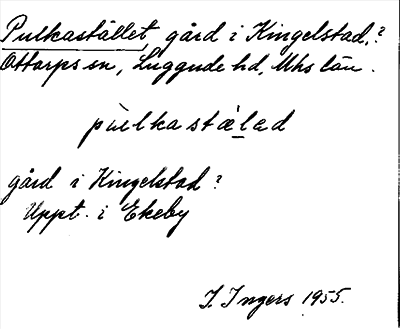 Pulkastället, gård i Kingelstad,?
Ottarps sn, Luggude hd, Mhs län.
pùlkastæ̀lləd
gård i Kingelstad?
Uppt. i Ekeby
I. Ingers 1955.